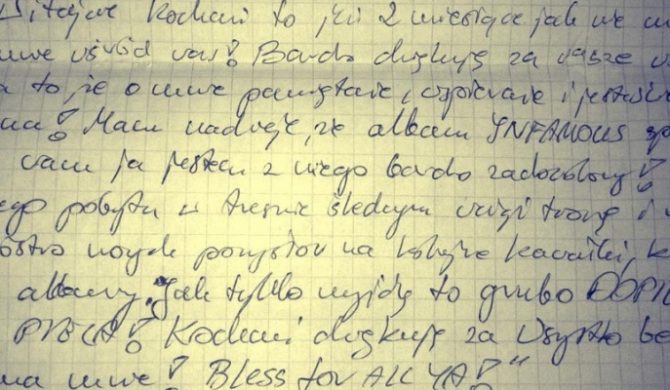 Witajcie Kochani to już 2 miesiące jak nie m
mnie wśród was! Bardo dziękuję za wasze
a to, że o mnie pamiętacie, wspieracie i jesteście
na! Mam nadzieję, że album INFAMOUS
vam ja jestem z niego bardo zadowolony!
ego pobytu w areszcie śledczym
ostro nowych pomysłów na kolejne kawałki, k
albumy. Jak tylko wyjdę to grubo DOPIE
Kochani dziękuję za wszysto
na mnie! Bless for ALL YA! "